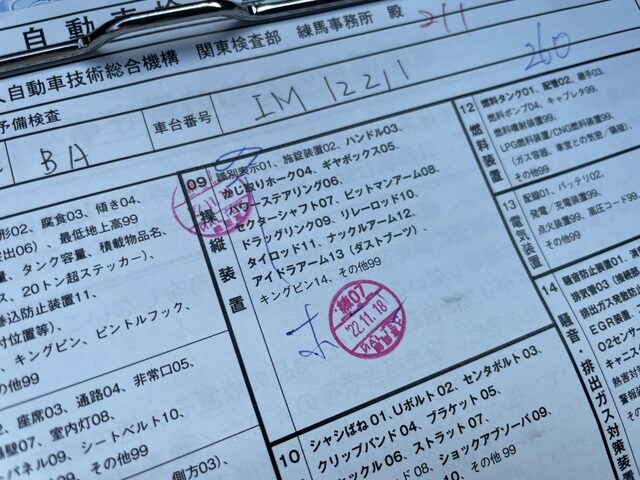 自動車検
人自動車技術総合機構 関東検査部 練馬事務所 殿
211
予備検査
BA
車台番号
IM 12211
260
形02、腐食03、傾き04、
突出06)、最低地上高99
量、タンク容量、積載物品名、
ス、20トン超ステッカー)、
巻込防止装置11、
付位置等)、
、キングピン、ピントルフック、
の他99
2、座席03、通路04、非常口05、
隔壁07、室内灯08、
パネル09、シートベルト10、
、その他99
側方03)、
09
操縦装置
識別表示01、施錠装置02、ハンドル03、
かじ取りホーク04、ギヤボックス05、
パワーステアリング06、
セクターシャフト07、ピットマンアーム08、
ドラッグリンク09、リレーロッド10、
タイロッド11、ナックルアーム12、
アイドラアーム13 (ダストブーツ)、
キングピン14、その他99
練07
'22.11.18
NALTEC
10
シャシばね01、Uボルト02、センタボルト03、
クリップバンド04、ブラケット05、
ャックル06、ストラット07、
ッド08、ショックアブソーバ09、
10、その他99
12
燃料装置
燃料タンク01、配管02、継手03、
燃料ポンプ04、キャブレタ99、
燃料噴射装置99、
LPG燃料装置/CNG燃料装置99、
(ガス容器、車室との気密、隔壁)、
その他99
13
電気装置
配線01、バッテリ02、
発電/充電装置99、
点火装置99、高圧コード99
その他99
14
騒音・排出ガス対策装置
騒音防止装置01、消
排気管03(接続
排出ガス発散防
EGR装置、
O2センサ
キャニス
熱害対
警報装
その他